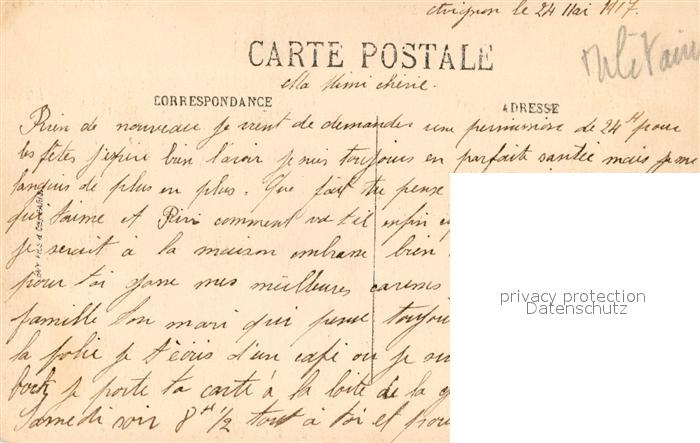 Avignon le 24 Mai 1917.
militaire
CARTE POSTALE
Ma Mimi chérie.
CORRESPONDANCE
ADRESSE
Rien de nouveau je vient de demander une permission de 24 H pour
les fêtes j'espère bien l'avoir je suis toujours en parfaite santée mais je me
languis de plus en plus. Que fait tu pense
qui t'aime et Riri comment va t'il enfin
je serait à la maison embrasse bien
pour toi garde mes meilleures caresses
famille ton mari qui pense toujours
la folie je t'écris d'un café ou je
bock je porte ta carte à la boite de la
Samedi soir 8 H 1/2 tout à toi et pour
privacy protection
Datenschutz